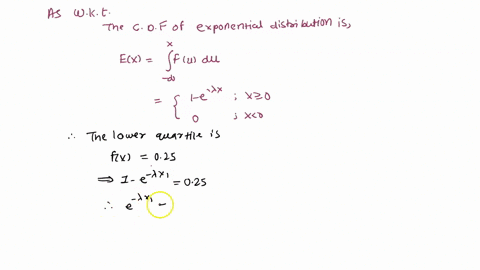 As W.K.t.
The C.D.F of exponential distribution is,
E(x) = ∫_{-∞}^{x} f(u) du
= { 1-e^{-λx} ; x≥0
0 ; x<0
∴ The lower quartile is
f(x) = 0.25
⟹ 1 - e^{-λx₁} = 0.25
∴ e^{-λx₁} =